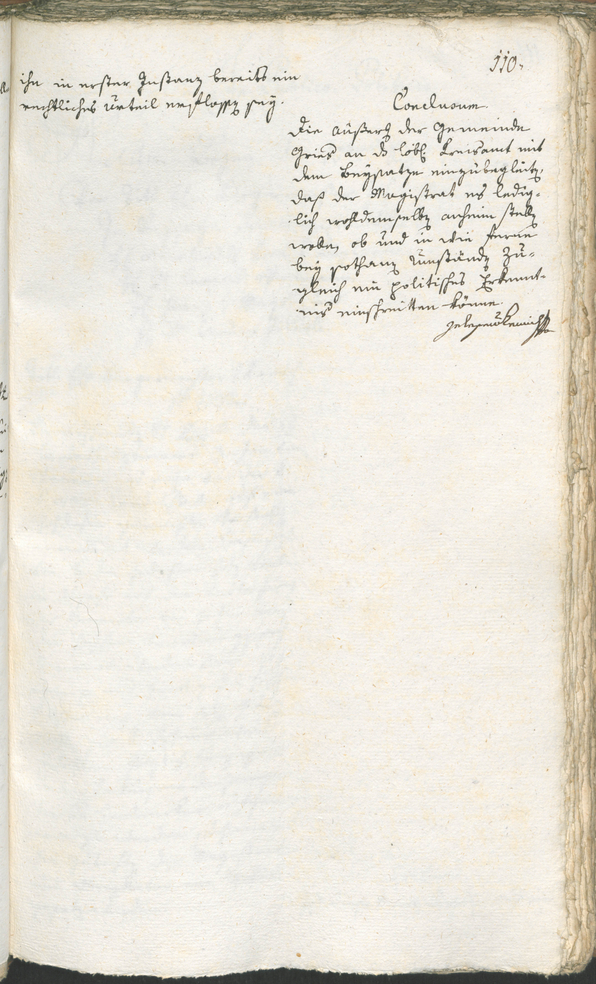 110.
ihn in erster Instanz bereits ein
rechtliches Urteil erflossen sey.
Conclusum
Die Äußerg der Gemeinde
Gries an ds löbl. Kreisamt mit
dem Beysatze einzubegleitn,
daß der Magistrat es ledig-
lich wohldemselbn anheim stelln
wolle, ob und in wie ferne
bey sothann Umständn zu-
gleich ein politisches Erkennt-
nis einschreitten könne.